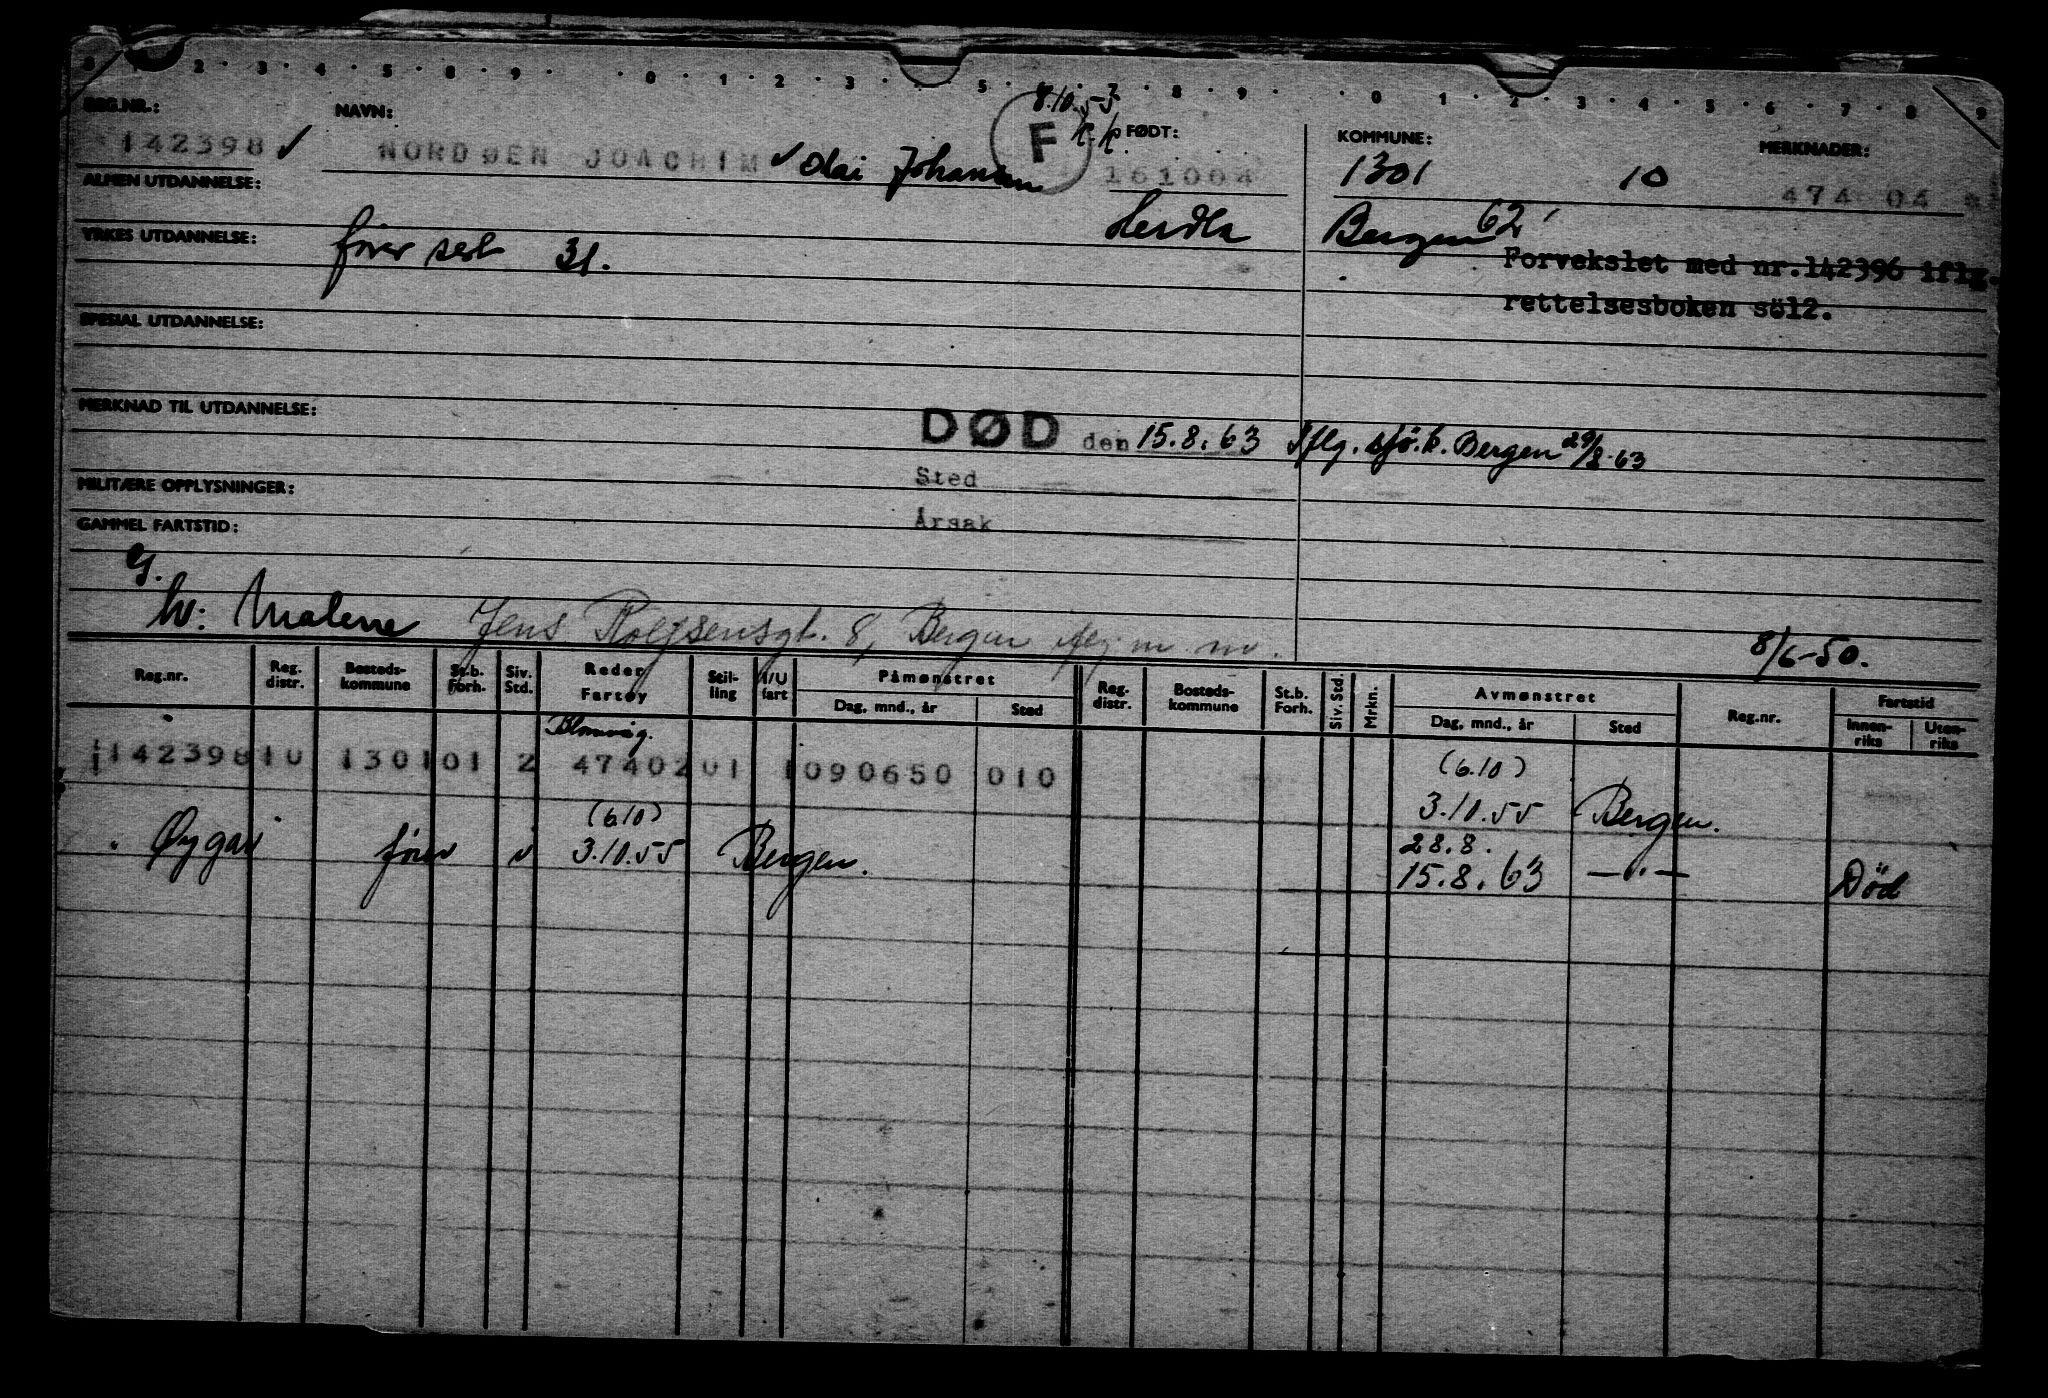 0 1 2 3 4 5 8 9 0 1 2 3 5 8 9 0 1 2 3 4 5 6 7 8 9
REG.NR.: NAVN: 8.10.53 F FØDT: KOMMUNE: MERKNADER:
142398 ✓ NORDØEN JOACHIM ✓ Olai Johannes 161004 1301 10 474 04
ALMEN UTDANNELSE: Herdla Bergen 62
YRKES UTDANNELSE: fører sert 31.
Forvekslet med nr.142396 iflg.
rettelsesboken söl2.
SPESIAL UTDANNELSE:
MERKNAD TIL UTDANNELSE:
DØD den 15.8.63 Iflg. sjö.k. Bergen 29/8.63
Sted
MILITÆRE OPPLYSNINGER:
Årsak
GAMMEL FARTSTID:
G.
hv: Malene Jens Rolfsensgt. 8, Bergen
8/6-50.
Reg.nr. Reg. distr. Bosteds-kommune St.b. Forh. Siv. Std. Reder Fartøy Stil-ling I/U fart Påmønstret Dag, mnd., år Sted Reg. distr. Bosteds-kommune St.b. Forh. Siv. Std. Mrkn. Avmønstret Dag, mnd., år Sted Reg.nr. Fartstid Innen-riks Uten-riks
Blomvåg.
142398 10 1301 01 2 47402 01 1 090650 010 (6.10)
3.10.55 Bergen.
(6.10) 28.8.
Øygar fører 3.10.55 Bergen. 15.8.63 —"— Död